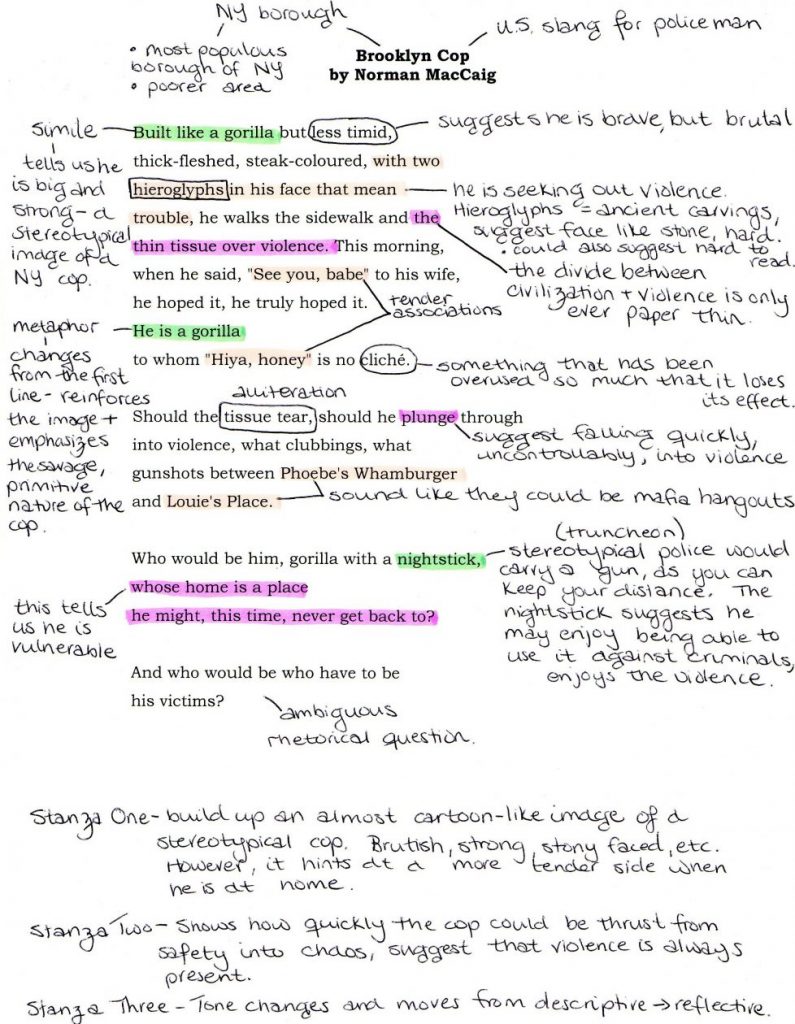 NY borough
U.S. slang for policeman
• most populous
borough of NY
• poorer area
Brooklyn Cop
by Norman MacCaig
simile
tells us he
is big and
strong - a
stereotypical
image of a
NY cop.
Built like a gorilla but less timid,
thick-fleshed, steak-coloured, with two
hieroglyphs in his face that mean
trouble, he walks the sidewalk and the
thin tissue over violence. This morning,
when he said, "See you, babe" to his wife,
he hoped it, he truly hoped it.
He is a gorilla
to whom "Hiya, honey" is no cliché.
suggests he is brave, but brutal
he is seeking out violence.
Hieroglyphs = ancient carvings,
suggest face like stone, hard.
• could also suggest hard to
read.
the divide between
civilization + violence is only
ever paper thin.
tender
associations
metaphor
changes
from the first
line - reinforces
the image +
emphasizes
the savage,
primitive
nature of the
cop.
something that has been
overused so much that it loses
its effect.
alliteration
Should the tissue tear, should he plunge through
into violence, what clubbings, what
gunshots between Phoebe's Whamburger
and Louie's Place.
suggest falling quickly,
uncontrollably, into violence
sound like they could be mafia hangouts
Who would be him, gorilla with a nightstick,
whose home is a place
he might, this time, never get back to?
(truncheon)
stereotypical police would
carry a gun, as you can
keep your distance. The
nightstick suggests he
may enjoy being able to
use it against criminals,
enjoys the violence.
this tells
us he is
vulnerable
And who would be who have to be
his victims?
ambiguous
rhetorical question.
Stanza One - build up an almost cartoon-like image of a
stereotypical cop. Brutish, strong, stony faced, etc.
However, it hints at a more tender side when
he is at home.
Stanza Two - Shows how quickly the cop could be thrust from
safety into chaos, suggest that violence is always
present.
Stanza Three - Tone changes and moves from descriptive → reflective.